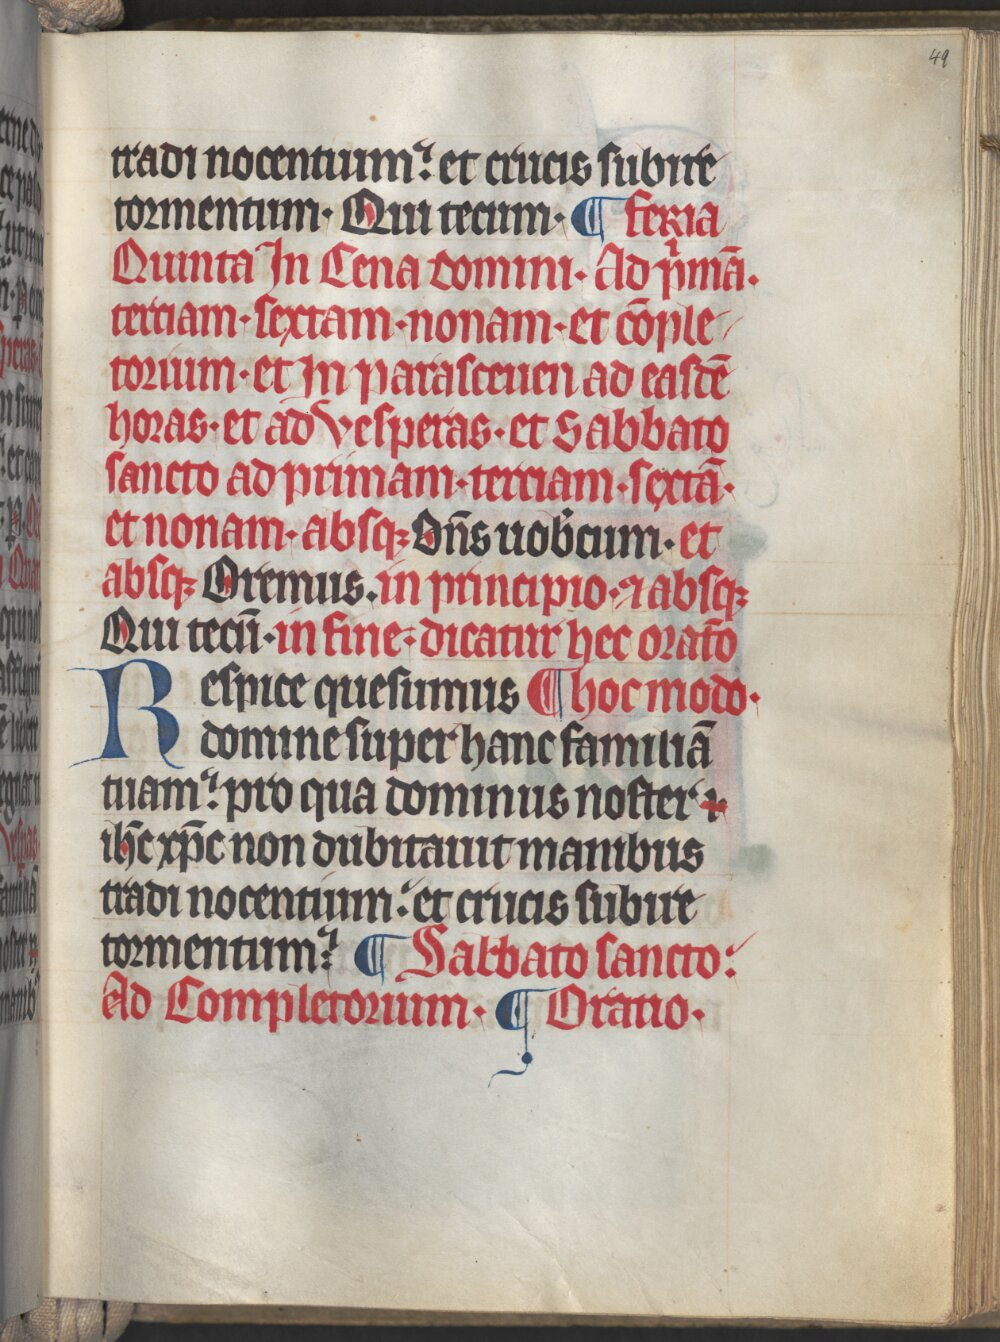 49
tradi nocentium. et crucis subire
tormentum. Qui tecum. ¶ feria
Quinta In Cena domini. Ad p̾mā.
terciam. sextam. nonam. et cōple
torium. et In parasceuen ad easdē
horas. et ad vesperas. et Sabbato
sancto ad primam. terciam. sextā.
et nonam. absqꝫ Dn̄s uob̾cum. et
absqꝫ Oremus. in principio. ⁊ absqꝫ
Qui tecū. in fine. dicatur hec orat̄o
Respice quesumus ¶ hoc modo.
domine super hanc familiā
tuam. pro qua dominus noster
ih̄c xp̄c non dubitauit manibus
tradi nocentium. et crucis subire
tormentum. ¶ Sabbato sancto.
Ad Completorium. ¶ Oratio.